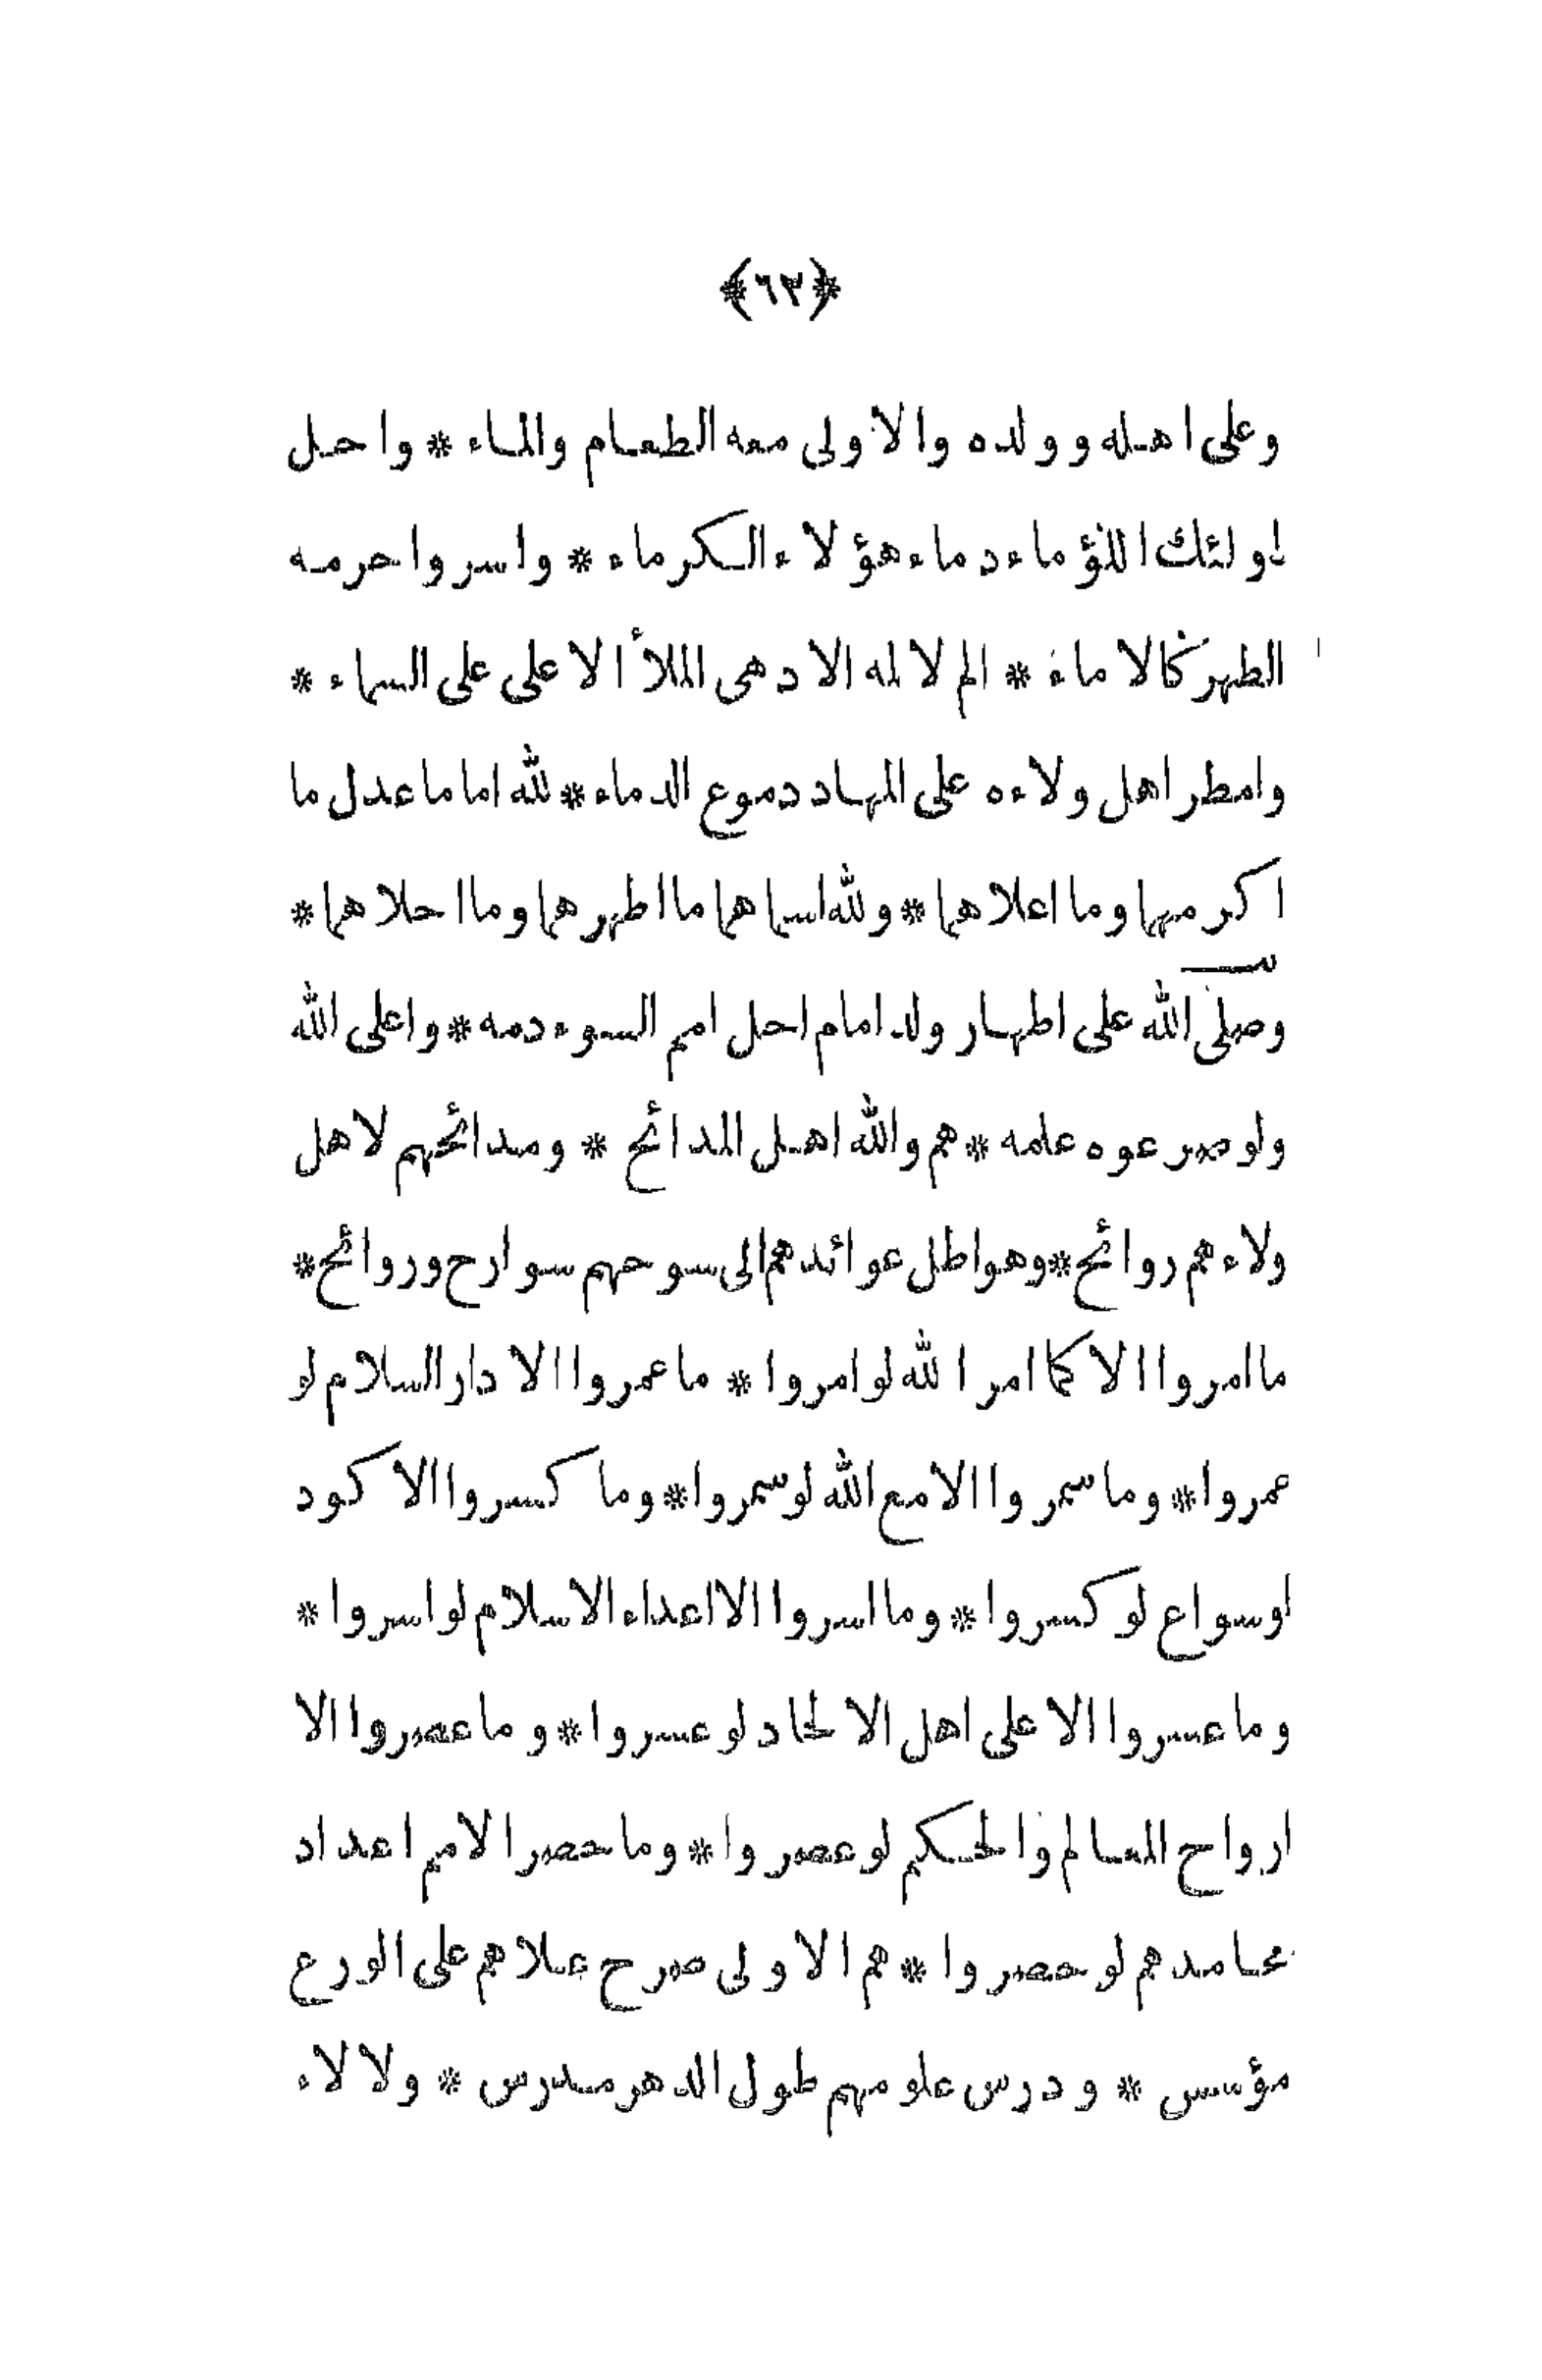 ﴿٦٣﴾
وعلى اهله وولده والاولى معه الطعام والماء * واحل
اولئك اللؤماء دماء هؤلاء الكرماء * واسروا حرمه
الطهر كالاماء * الم لا لمه الا دهى الملأ الاعلى على السماء *
وامطر اهل ولاءه على المهاد دموع الدماء * لله اما ما عدل ما
اكرمهما وما اعلاهما * ولله اسماهما ما اطهرهما وما احلاهما *
وصلى الله على اطهار ولد امام احل امم السوء دمه * واعلى الله
ولو صرعوه علمه * هم والله اهل المدائح * ومدائحهم لاهل
ولاءهم روائح * وهواطل عوائدهم الى سوحهم سوارح وروائح *
ما امروا الا كما امر الله لو امروا * ما عمروا الا دار السلام لو
عمروا * وما سمروا الا مع الله لو سمروا * وما كسروا الا كود
لوسواع لو كسروا * وما اسروا الا اعداء الاسلام لو اسروا *
وما عسروا الا على اهل الالحاد لو عسروا * وما عصروا الا
ارواح المعالم والحكم لو عصروا * وما حصر الامم اعداد
محامدهم لو حصروا * هم الاولى صرح علاهم على الورع
مؤسس * ودرس علومهم طول الدهر مدرس * ولالاء